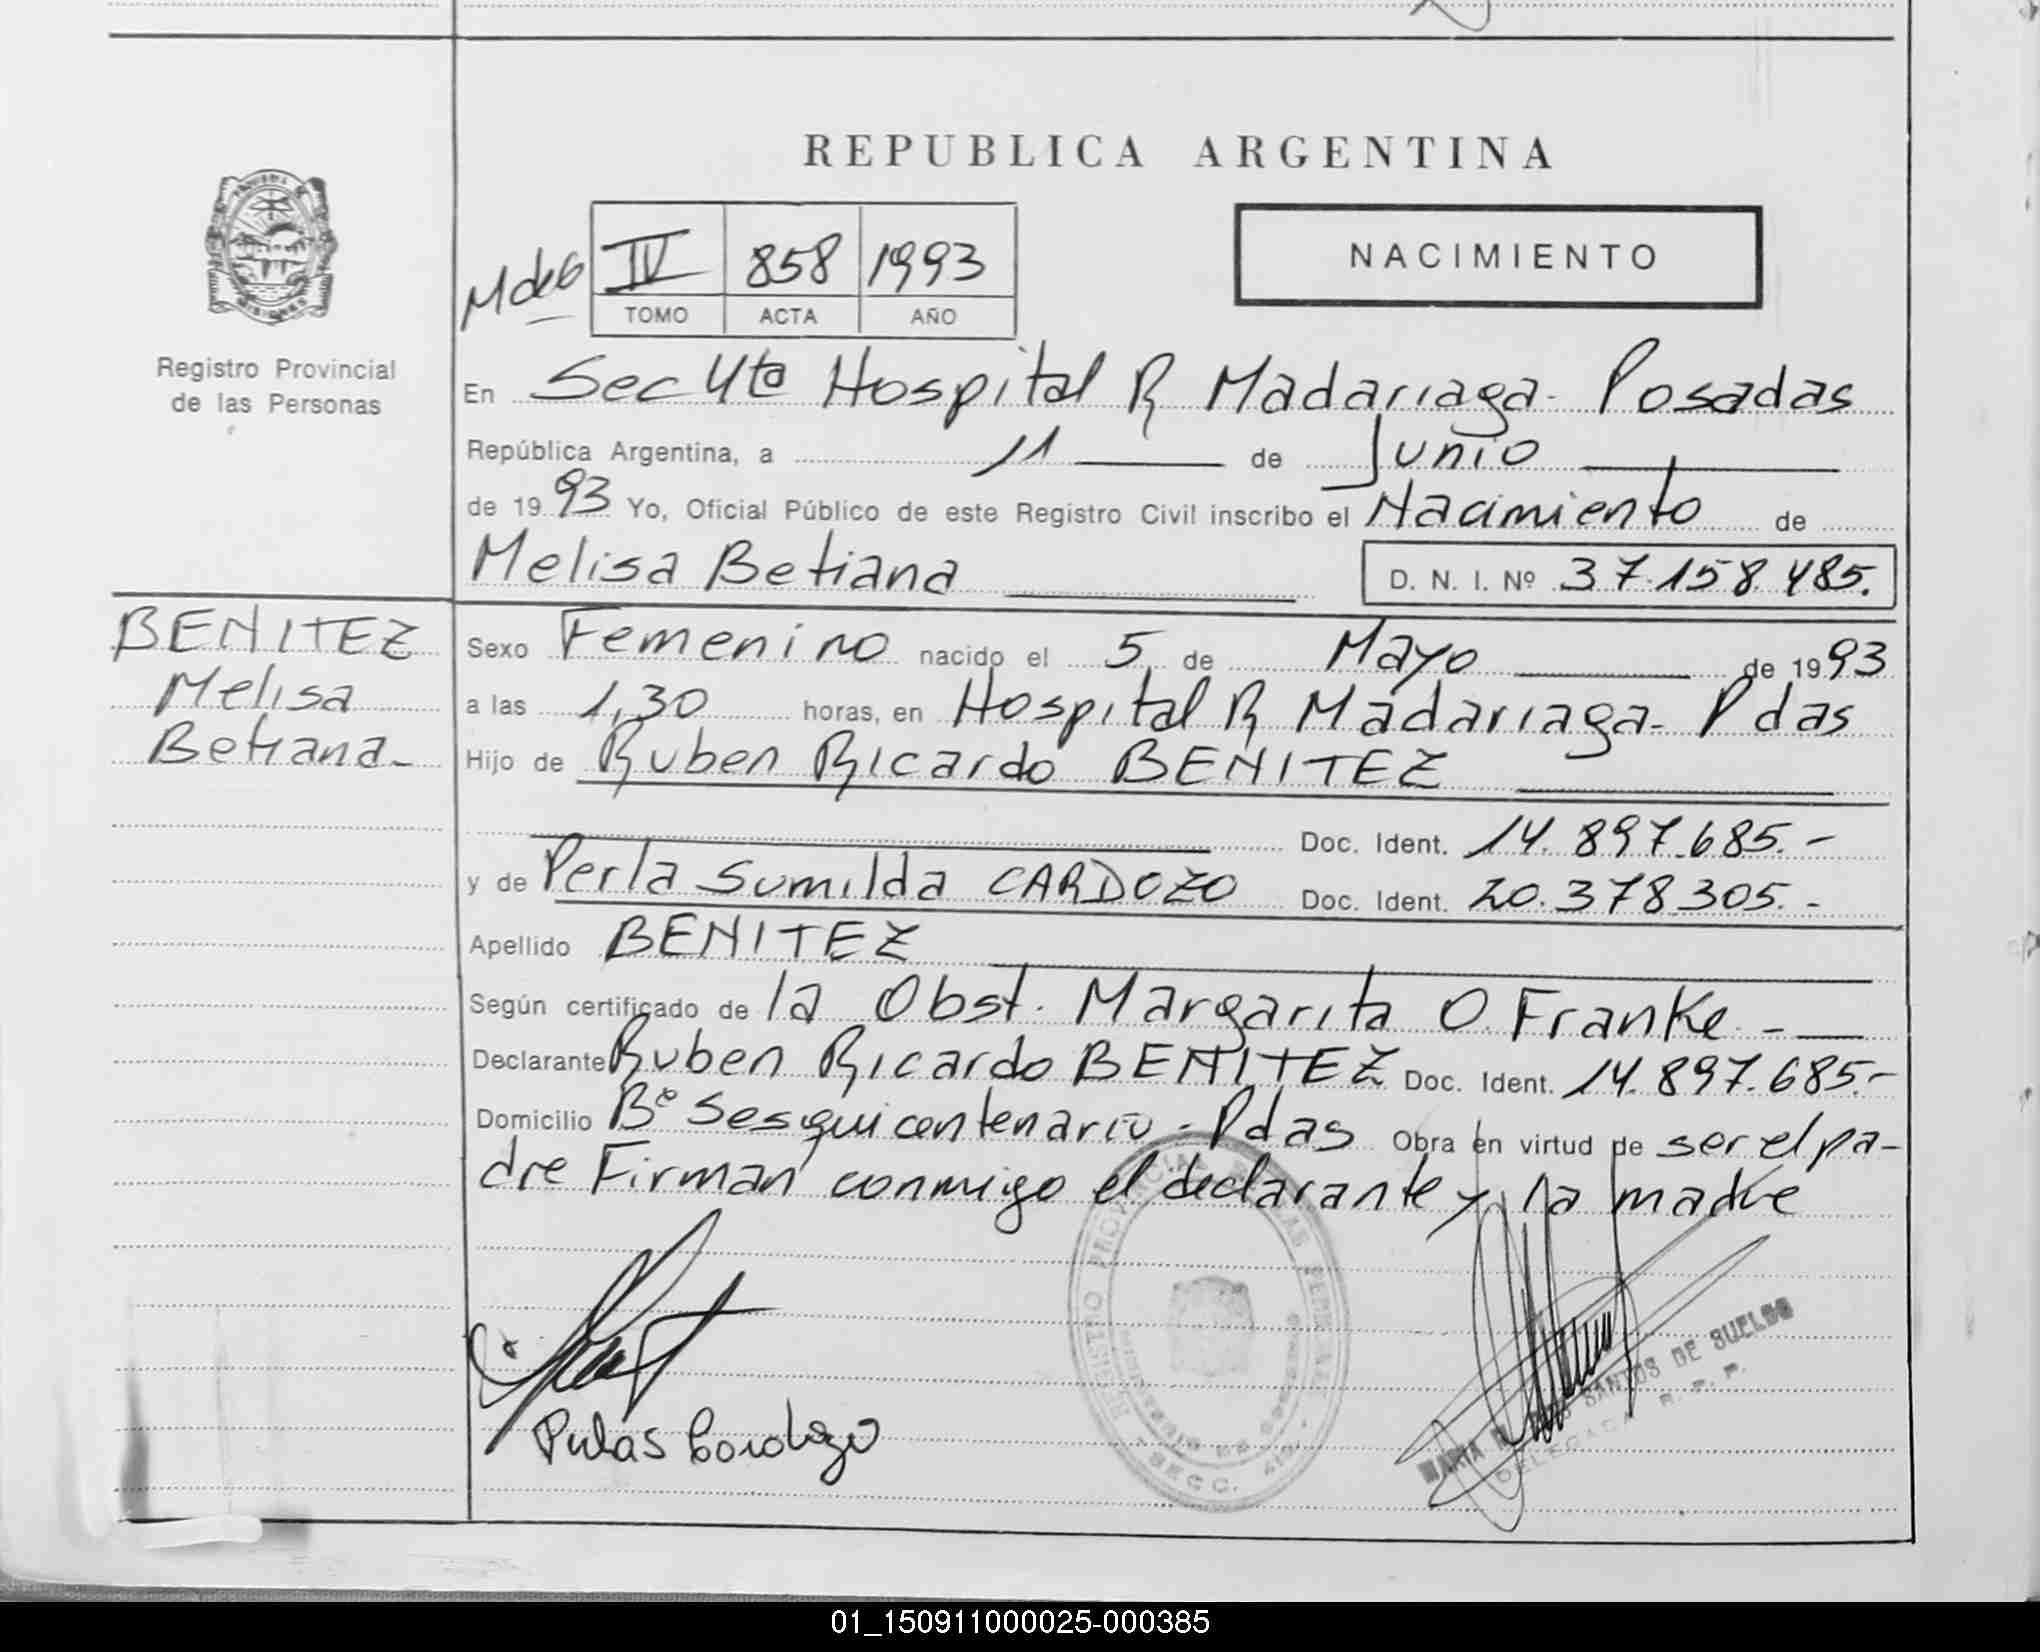 REPUBLICA ARGENTINA
NACIMIENTO
MdeG IV 858 1993
TOMO ACTA AÑO
Registro Provincial
de las Personas
En Sec 4ta Hospital R Madariaga - Posadas
República Argentina, a 11 de Junio
de 1993 Yo, Oficial Público de este Registro Civil inscribo el Nacimiento de
Melisa Betiana D. N. I. Nº 37.158.485.
BENITEZ
Melisa
Betiana -
Sexo Femenino nacido el 5 de Mayo de 1993
a las 1,30 horas, en Hospital R Madariaga - Pdas
Hijo de Ruben Ricardo BENITEZ
Doc. Ident. 14.897.685.-
y de Perla Sumilda CARDOZO Doc. Ident. 20.378.305.-
Apellido BENITEZ
Según certificado de la Obst. Margarita O. Franke -
Declarante Ruben Ricardo BENITEZ Doc. Ident. 14.897.685.-
Domicilio Bº Sesquicentenario - Pdas Obra en virtud de ser el pa-
dre Firman conmigo el declarante y la madre
REGISTRO PROVINCIAL DE LAS PERSONAS
SECC. 4ta.
MARIA SANTOS DE SUELDO
DELEGADA R. P. P.
01_150911000025-000385